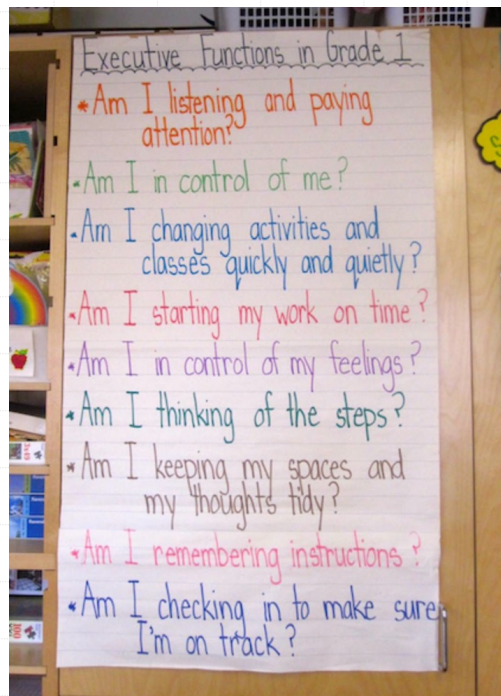 Executive Functions in Grade 1
*Am I listening and paying
attention?
*Am I in control of me?
*Am I changing activities and
classes quickly and quietly?
*Am I starting my work on time?
*Am I in control of my feelings?
*Am I thinking of the steps?
*Am I keeping my spaces and
my thoughts tidy?
*Am I remembering instructions?
*Am I checking in to make sure
I'm on track?